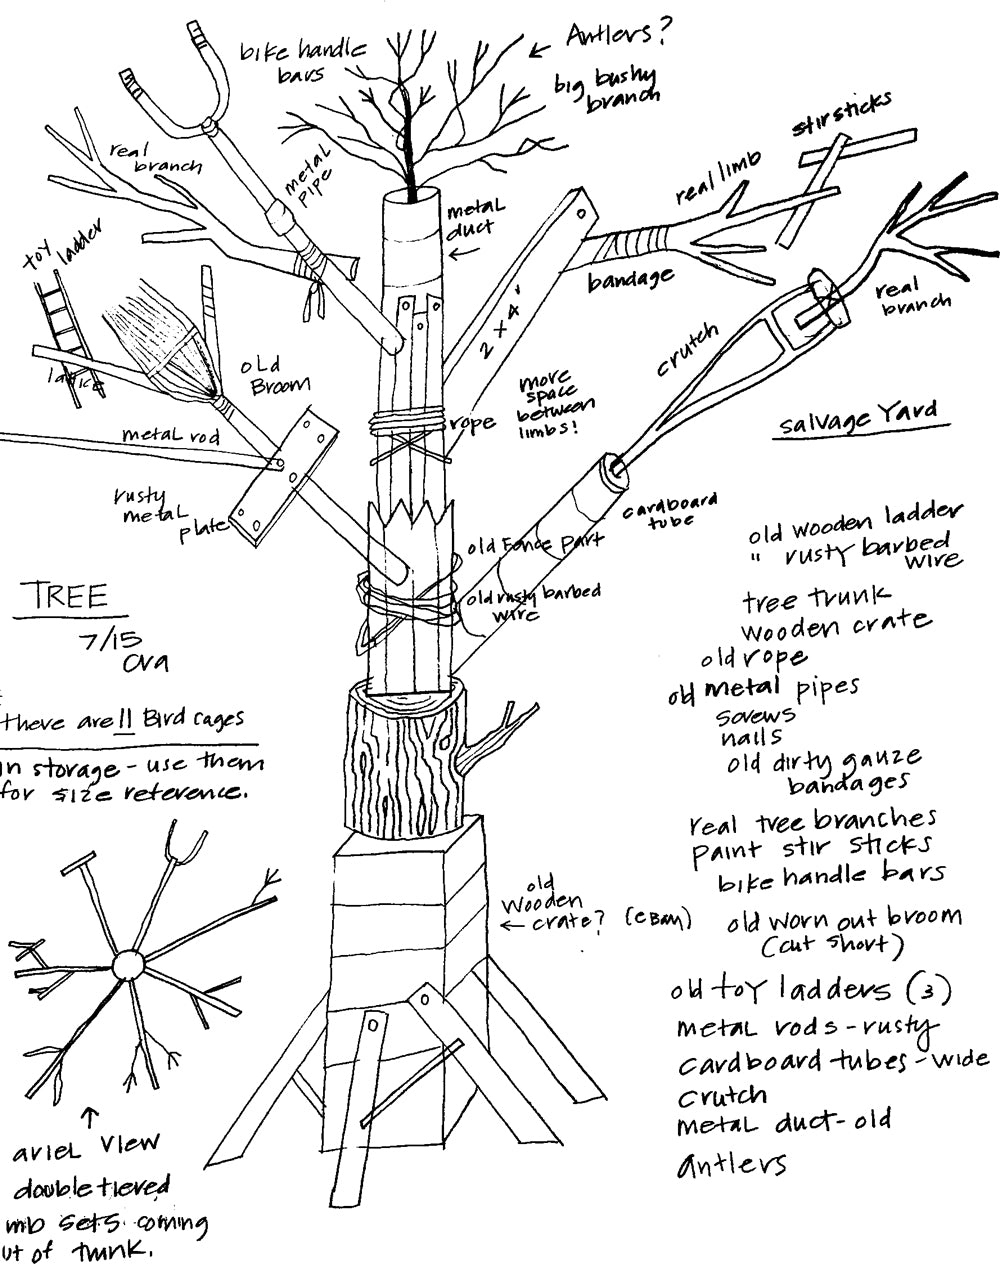 bike handle
bars
Antlers?
big bushy
branch
real
branch
metal
pipe
toy
ladder
stir sticks
real limb
metal
duct
bandage
2 x 4'
real
branch
crutch
lattice
old
Broom
more
space
between
limbs!
rope
metal rod
rusty
metal
plate
salvage Yard
cardboard
tube
old Fence part
old rusty barbed
wire
old wooden ladder
" rusty barbed
wire
tree trunk
wooden crate
old rope
old metal pipes
screws
nails
old dirty gauze
bandages
real tree branches
paint stir sticks
bike handle bars
old worn out broom
(cut short)
old toy ladders (3)
metal rods - rusty
cardboard tubes - wide
crutch
metal duct - old
antlers
TREE
7/15
ova
there are 11 Bird cages
in storage - use them
for size reference.
old
wooden
crate? (eBay)
ariel view
double tiered
mb sets coming
ut of trunk.